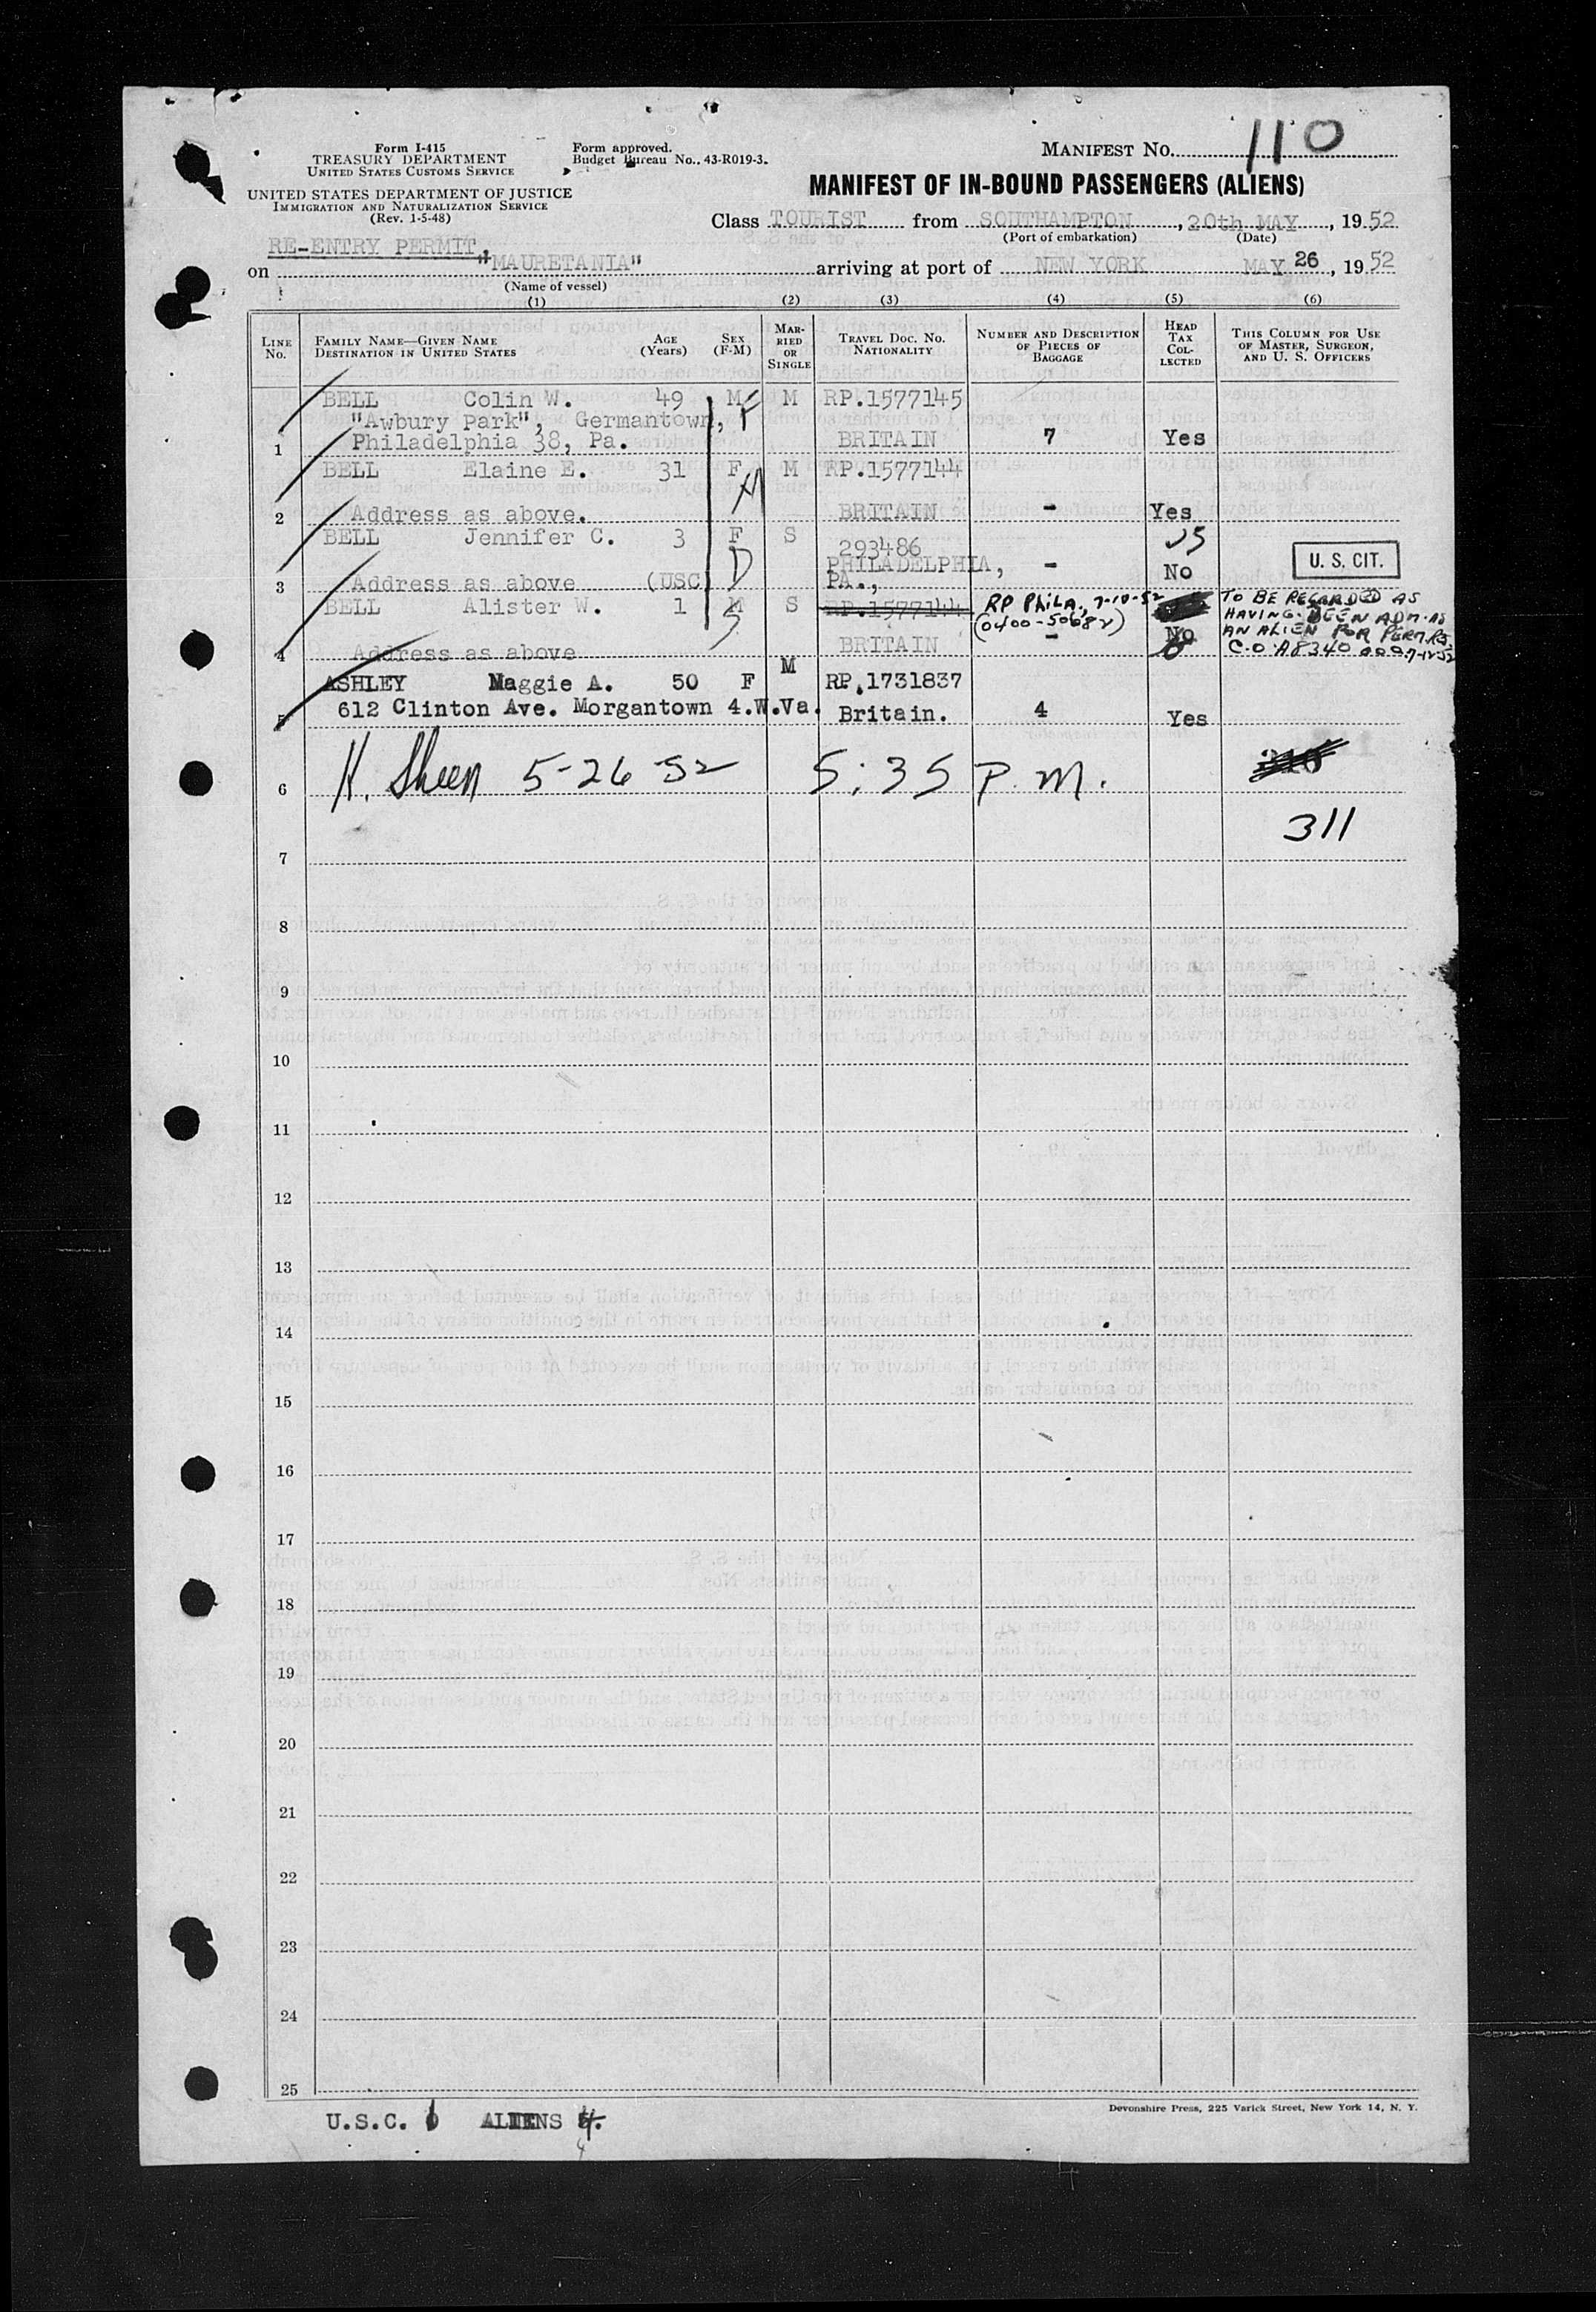 Form I-415
TREASURY DEPARTMENT
UNITED STATES CUSTOMS SERVICE
UNITED STATES DEPARTMENT OF JUSTICE
IMMIGRATION AND NATURALIZATION SERVICE
(Rev. 1-5-48)
Form approved.
Budget Bureau No. 43-R019-3.
MANIFEST No. 110
MANIFEST OF IN-BOUND PASSENGERS (ALIENS)
Class TOURIST from SOUTHAMPTON, 20th MAY, 1952
(Port of embarkation) (Date)
RE-ENTRY PERMIT,
on "MAURETANIA" arriving at port of NEW YORK MAY 26, 1952
(Name of vessel)
(1) (2) (3) (4) (5) (6)
LINE No. FAMILY NAME—GIVEN NAME DESTINATION IN UNITED STATES AGE (Years) SEX (F-M) MARRIED OR SINGLE TRAVEL DOC. NO. NATIONALITY NUMBER AND DESCRIPTION OF PIECES OF BAGGAGE HEAD TAX COLLECTED THIS COLUMN FOR USE OF MASTER, SURGEON, AND U. S. OFFICERS
BELL Colin W. 49 M M RP.1577145
"Awbury Park", Germantown,
1 Philadelphia 38, Pa. BRITAIN 7 Yes
BELL Elaine E. 31 F M RP.1577144
2 Address as above. BRITAIN - Yes
BELL Jennifer C. 3 F S 293486
PHILADELPHIA,
3 Address as above (USC) PA., - No U. S. CIT.
BELL Alister W. 1 M S RP.1577144 RP PHILA, 7-10-52 TO BE REGARDED AS
(0400-50682) HAVING BEEN ADM. AS
AN ALIEN FOR PERM. RES.
4 Address as above BRITAIN - No C.O. A8340 000 7-12-52
ASHLEY Maggie A. 50 F M RP.1731837
5 612 Clinton Ave. Morgantown 4.W.Va. Britain. 4 Yes
6 H. Sheen 5-26-52 5:35 P.M.
311
7
8
9
10
11
12
13
14
15
16
17
18
19
20
21
22
23
24
25
U.S.C. ALIENS 4.
4
Devonshire Press, 225 Varick Street, New York 14, N. Y.